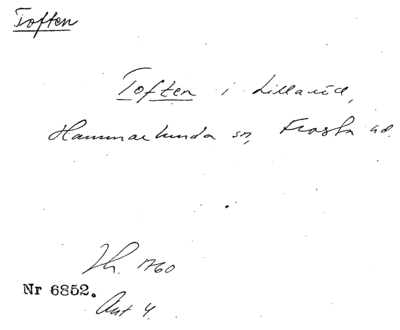 Toften
Toften i Lillaröd,
Hammarlunda sn, Frosta hd.
Jh. 1760
Nr 6852.
Ant 4.